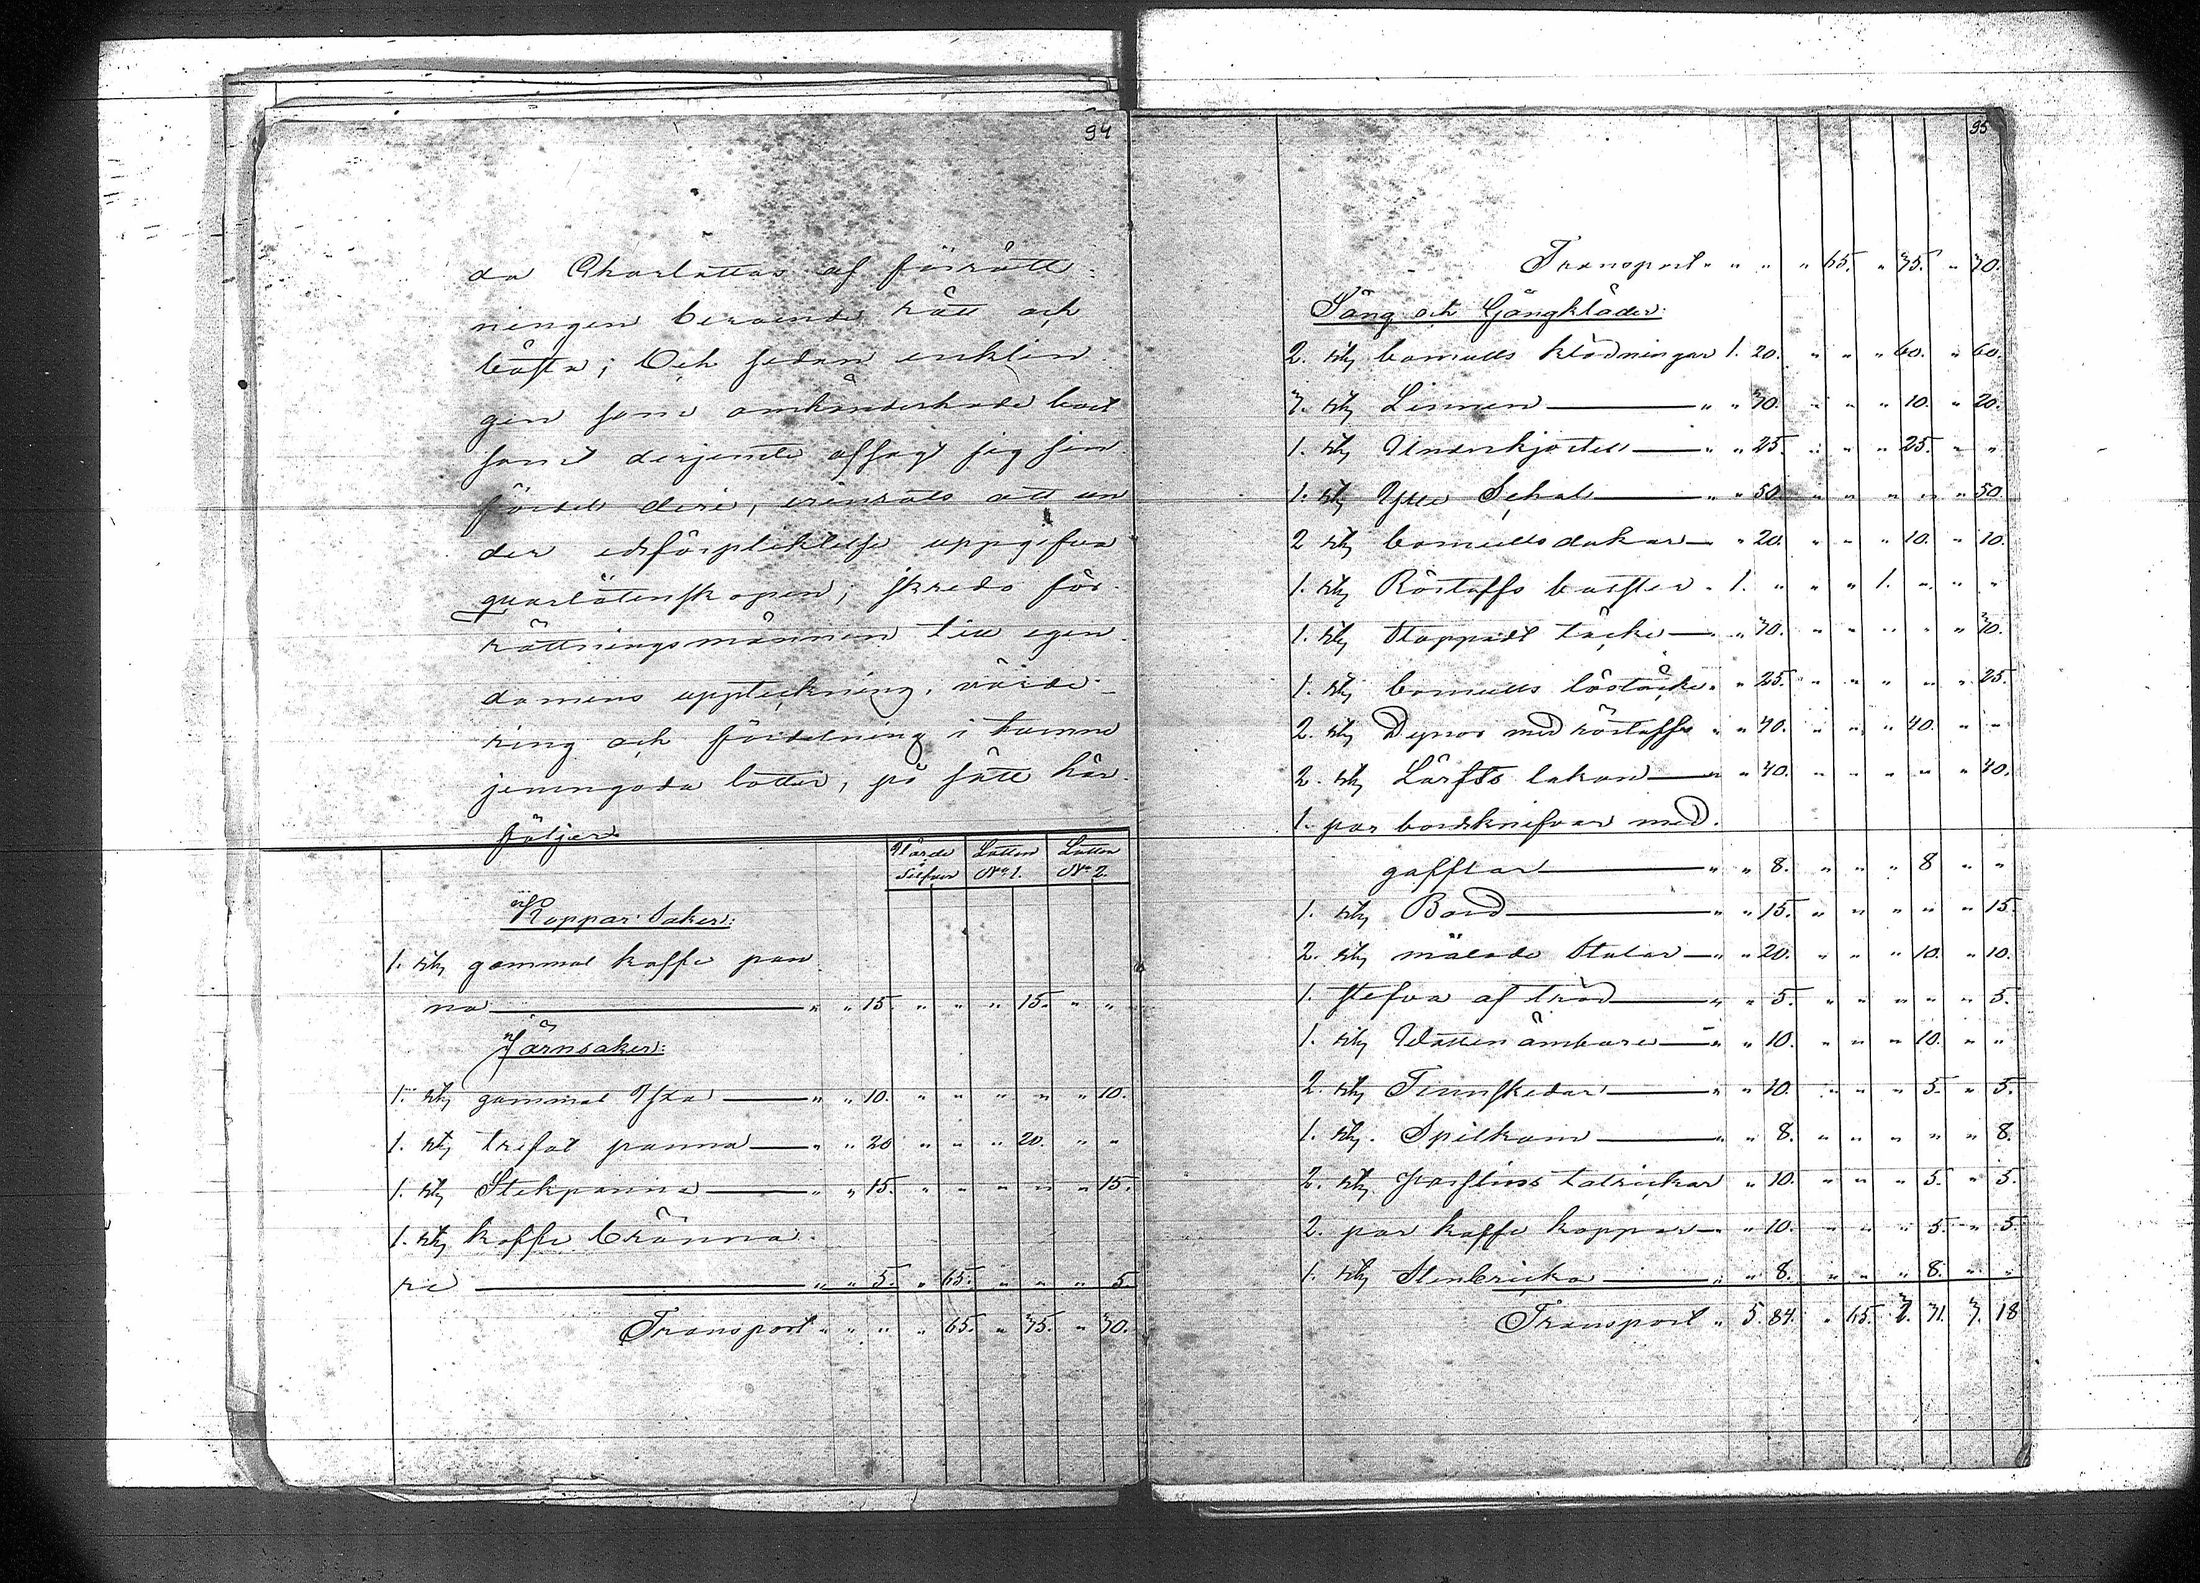 94
da Charlottas af förrätt:
ningen beroende rätt och
bästa; Och sedan enklin
gen som omhänderhade boet
samt derjemte afsagt sig sin
fördel deri, erinrats att un
der edsförpliktelse uppgifva
quarlåtenskapen; skredo för-
rättningsmännen till egen
domens uppteckning, värde-
ring och fördelning i tvenne
jemngoda lotter, på sätt här
följer
Värde Lotten Lotten
Silfver No 1. No 2.
Koppar Saker:
1. st gammal kaffe pan
na " " 15. " " " 15. " "
Järnsaker:
1. st gammal Yxa " " 10. " " " " " 10.
1. st trefot panna " " 20 " " " 20. " "
1. st Stekpanna " " 15. " " " " " 15.
1. st kaffe bränna-
re " " 5. " 65. " " " 5.
Transport " " " " 65. " 35. " 30.
95
Transport " " " " 65. " 35. " 30.
Säng och Gångkläder:
2. st bomulls klädningar 1. 20. " " " 60. " 60.
3. st Linnen " " 30. " " " 10. " 20.
1. st Underkjortel " " 25. " " " 25. " "
1. st Ylle Schal " " 50. " " " " " 50.
2 st bomullsdukar " 20. " " " 10. " 10.
1. st Röstoffs bolster " 1. " " " 1. " " "
1. st Stoppadt täcke " " 30. " " " " " 30.
1. st bomulls löstäcke " " 25. " " " " " 25.
2. st Dynor med röstoffs " " 40. " " " 40. " "
2. st Lärfts lakan " " 40. " " " " " 40.
1. par bordsknifvar med
gafflar " " 8. " " " 8 " "
1. st Bord " " 15. " " " " " 15.
2. st målade Stolar " " 20. " " " 10. " 10.
1. stefva af träd " " 5. " " " " " 5.
1. st Watten ämbare " " 10. " " " 10. " "
2. st Tennskedar " " 10. " " " 5. " 5.
1. st. Spilkum " " 8. " " " " " 8.
2. st. porslins talrickar " 10. " " " 5. " 5.
2. par kaffe koppar " " 10. " " " 5. " 5.
1. st Stenbricka " " 8. " " " 8. " "
Transport " 5. 84. " 65. 3. 31. 3. 18